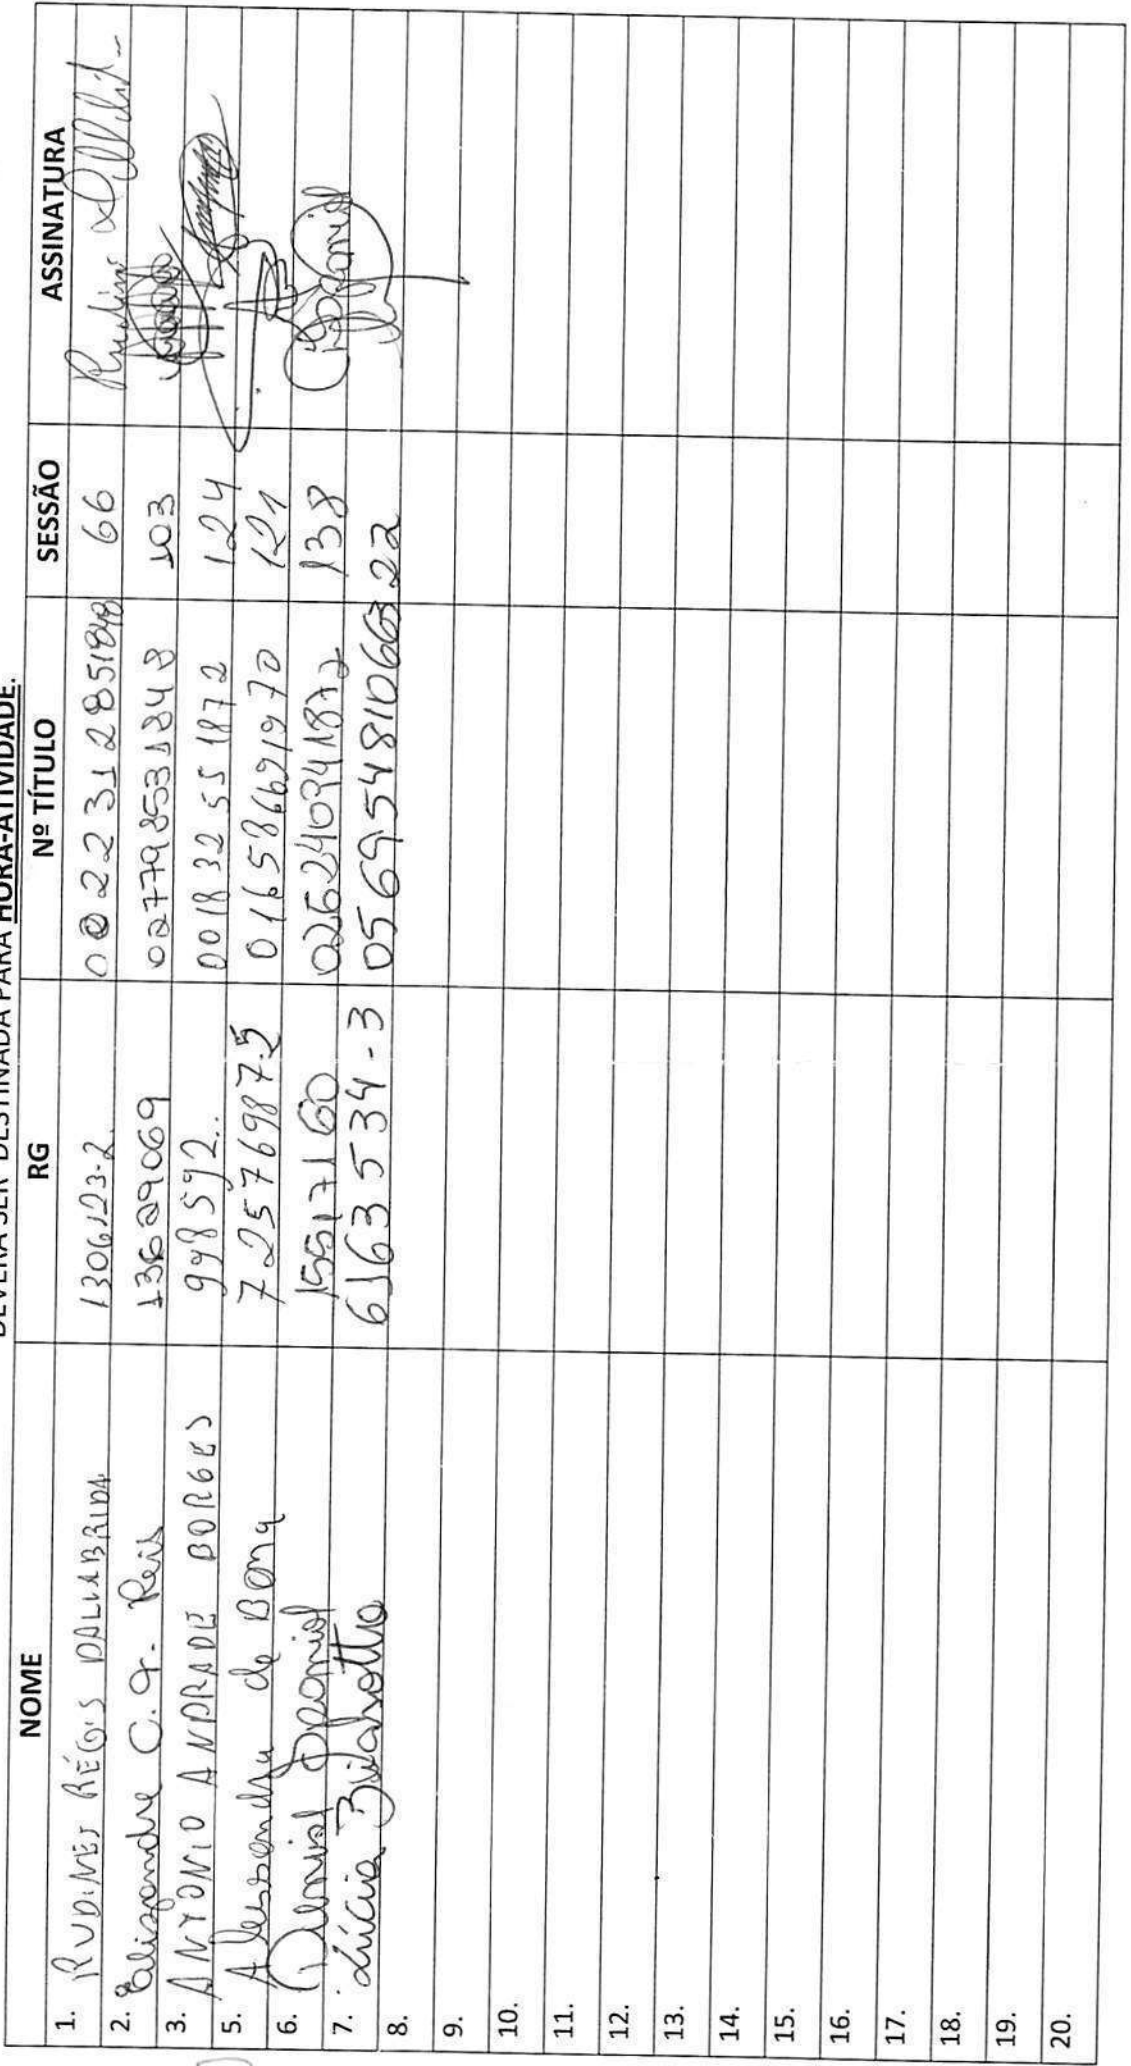 DEVERÁ SER DESTINADA PARA HORA-ATIVIDADE.
NOME RG Nº TÍTULO SESSÃO ASSINATURA
1. RUDINEJ RÉGIS DALLABRIDA 1306123-2 0022312851848 66
2. C. Reis 13629069 027798531848 103
3. ANTONIO ANDRADE BORGES 998592.. 001832551872 124
5. Alessandra de Bona 7.257.6987.5 016586691970 121
6. 15517160 026240941872 138
7. Lúcia 6163534-3 056954810663 22
8.
9.
10.
11.
12.
13.
14.
15.
16.
17.
18.
19.
20.